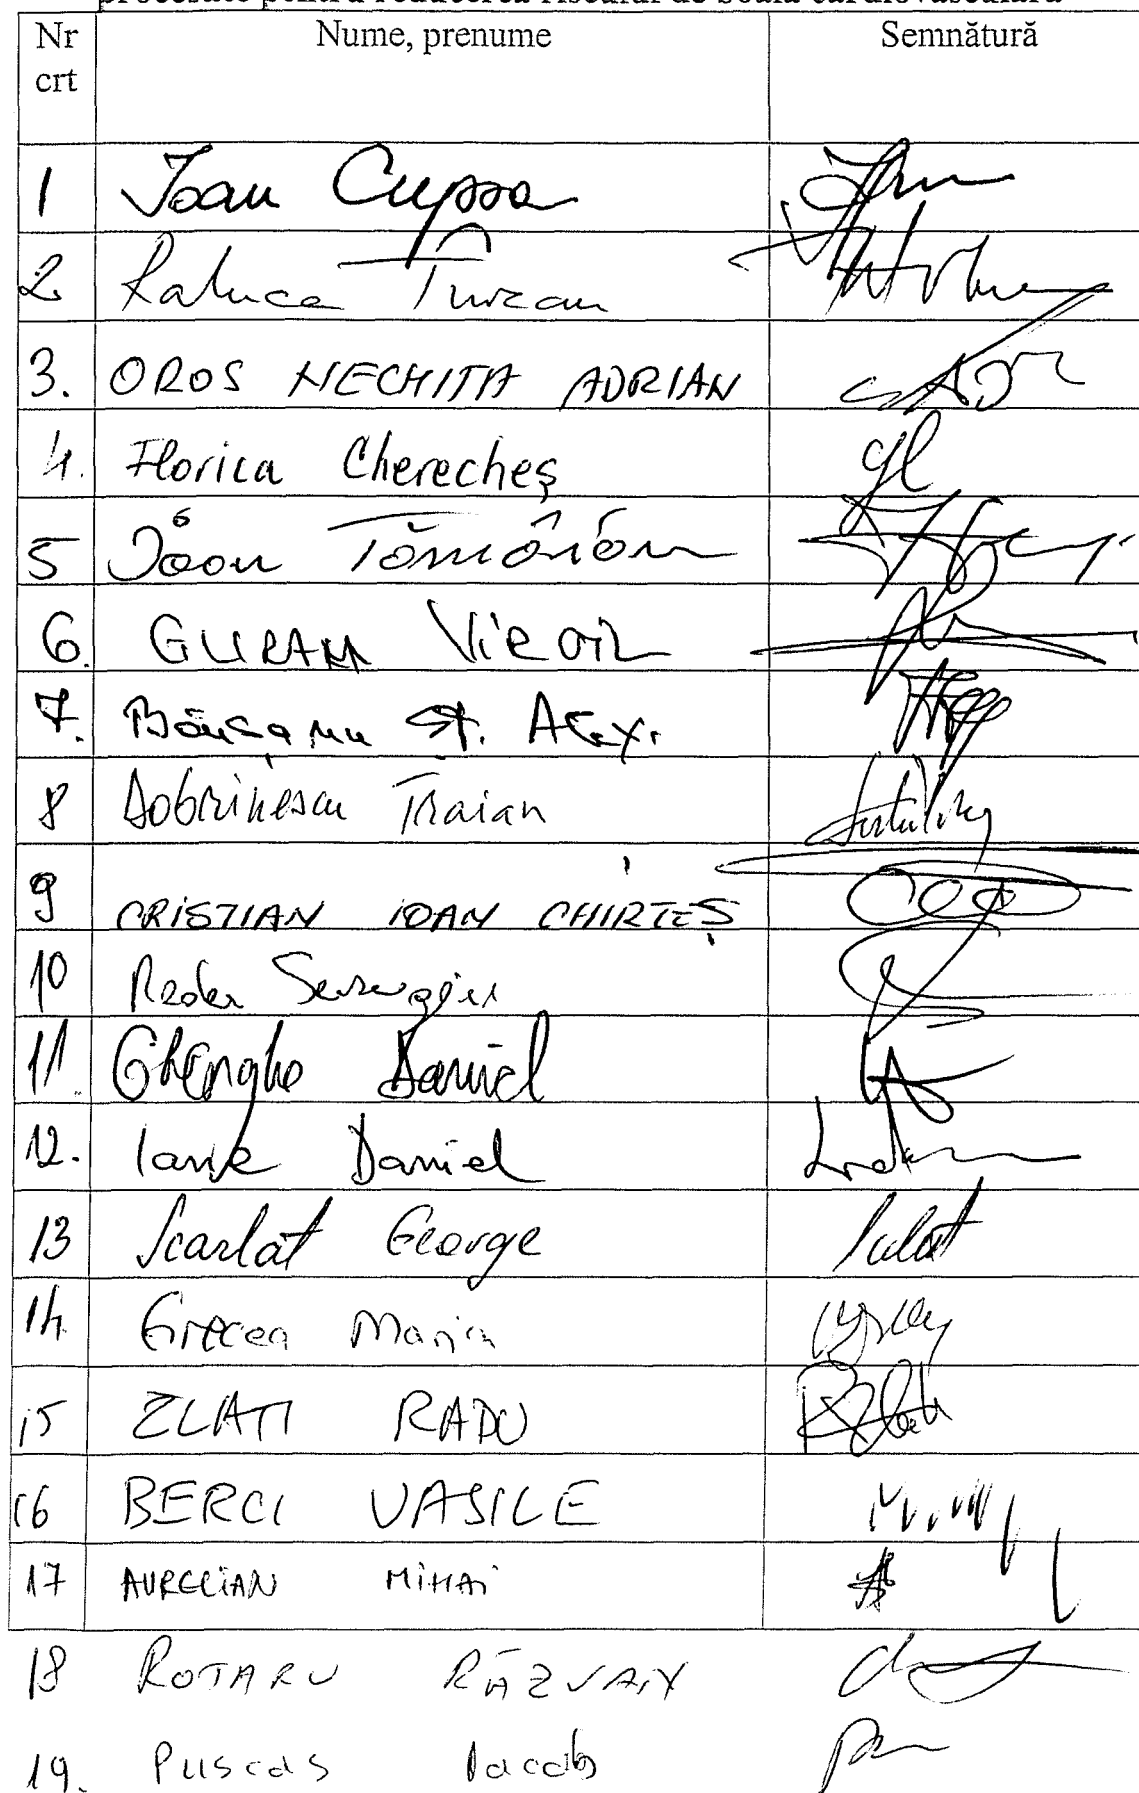 procesate pentru reducerea riscului de boală cardiovasculară
Nr crt Nume, prenume Semnătură
1 Ioan Cupșa
2 Raluca Turcan
3. OROS NECHITA ADRIAN
4. Florica Cherecheș
5 Ioan Tămâian
6. GURAN Virgil
7. Băișanu Șt. Alex.
8 Dobrinescu Traian
9 CRISTIAN IOAN CHIRTEȘ
10 Radu Surugiu
11. Gheorghe Daniel
12. Iane Daniel
13 Scarlat George
14. Grecea Maria
15 ZLATI RADU
16 BERCI VASILE
17 AURELIAN MIHAI
18 ROTARU RĂZVAN
19. Puscas Iacob